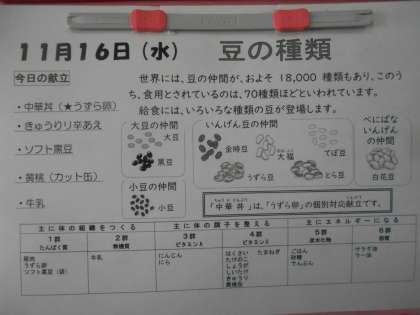 11月16日（水） 豆の種類
今日の献立
・中華丼（★うずら卵）
・きゅうりピリ辛あえ
・ソフト黒豆
・黄桃（カット缶）
・牛乳
世界には、豆の仲間が、およそ 18,000 種類もあり、このう
ち、食用とされているのは、70種類ほどといわれています。
給食には、いろいろな種類の豆が登場します。
大豆の仲間
大豆
黒豆
小豆の仲間
小豆
いんげん豆の仲間
金時豆
大福
てぼ豆
うずら豆
とら豆
べにばな
いんげん
の仲間
白花豆
「中華丼」は、「うずら卵」の個別対応献立です。
主に体の組織をつくる 主に体の調子を整える 主にエネルギーになる
1群 2群 3群 4群 5群 6群
たんぱく質 無機質 ビタミンA ビタミンC 炭水化物 脂質
うずら卵
ソフト黒豆（袋）
牛乳
にんじん
にら
はくさい たまねぎ
たけのこ
しょうが
しいたけ
きゅうり
黄桃缶
ごはん
砂糖
でんぷん
サラダ油
ラー油